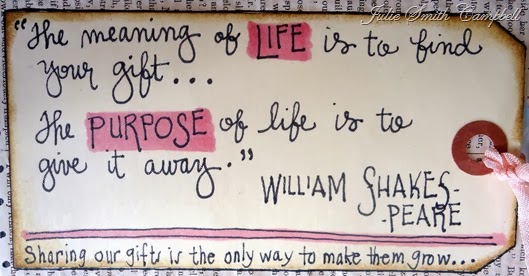 Julie Smith Campbell
"The meaning of LIFE is to find
your gift...
The PURPOSE of life is to
give it away."
WILLIAM SHAKES-
-PEARE
Sharing our gifts is the only way to make them grow...